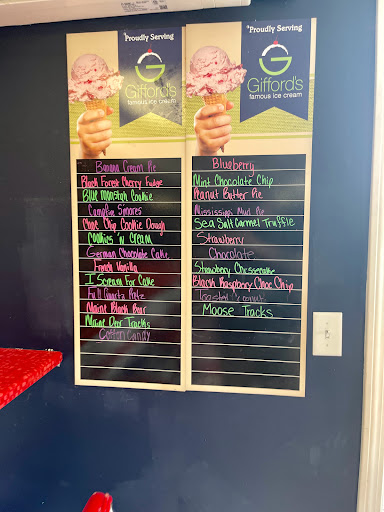 Proudly Serving
Gifford's
famous ice cream
Banana Cream Pie
Black Forest Cherry Fudge
Blue monstah Cookie
Campfire S'mores
Choc Chip Cookie Dough
Cookies 'n Cream
German Chocolate Cake
French Vanilla
I Scream For Cake
Full
Maine Black Bear
Maine Deer Tracks
Cotton Candy
Proudly Serving
Gifford's
famous ice cream
Blueberry
Mint Chocolate Chip
Peanut Butter Pie
Mississippi Mud Pie
Sea Salt Caramel Truffle
Strawberry
Chocolate
Strawberry Cheesecake
Black Raspberry Choc Chip
Toasted Coconut
Moose Tracks